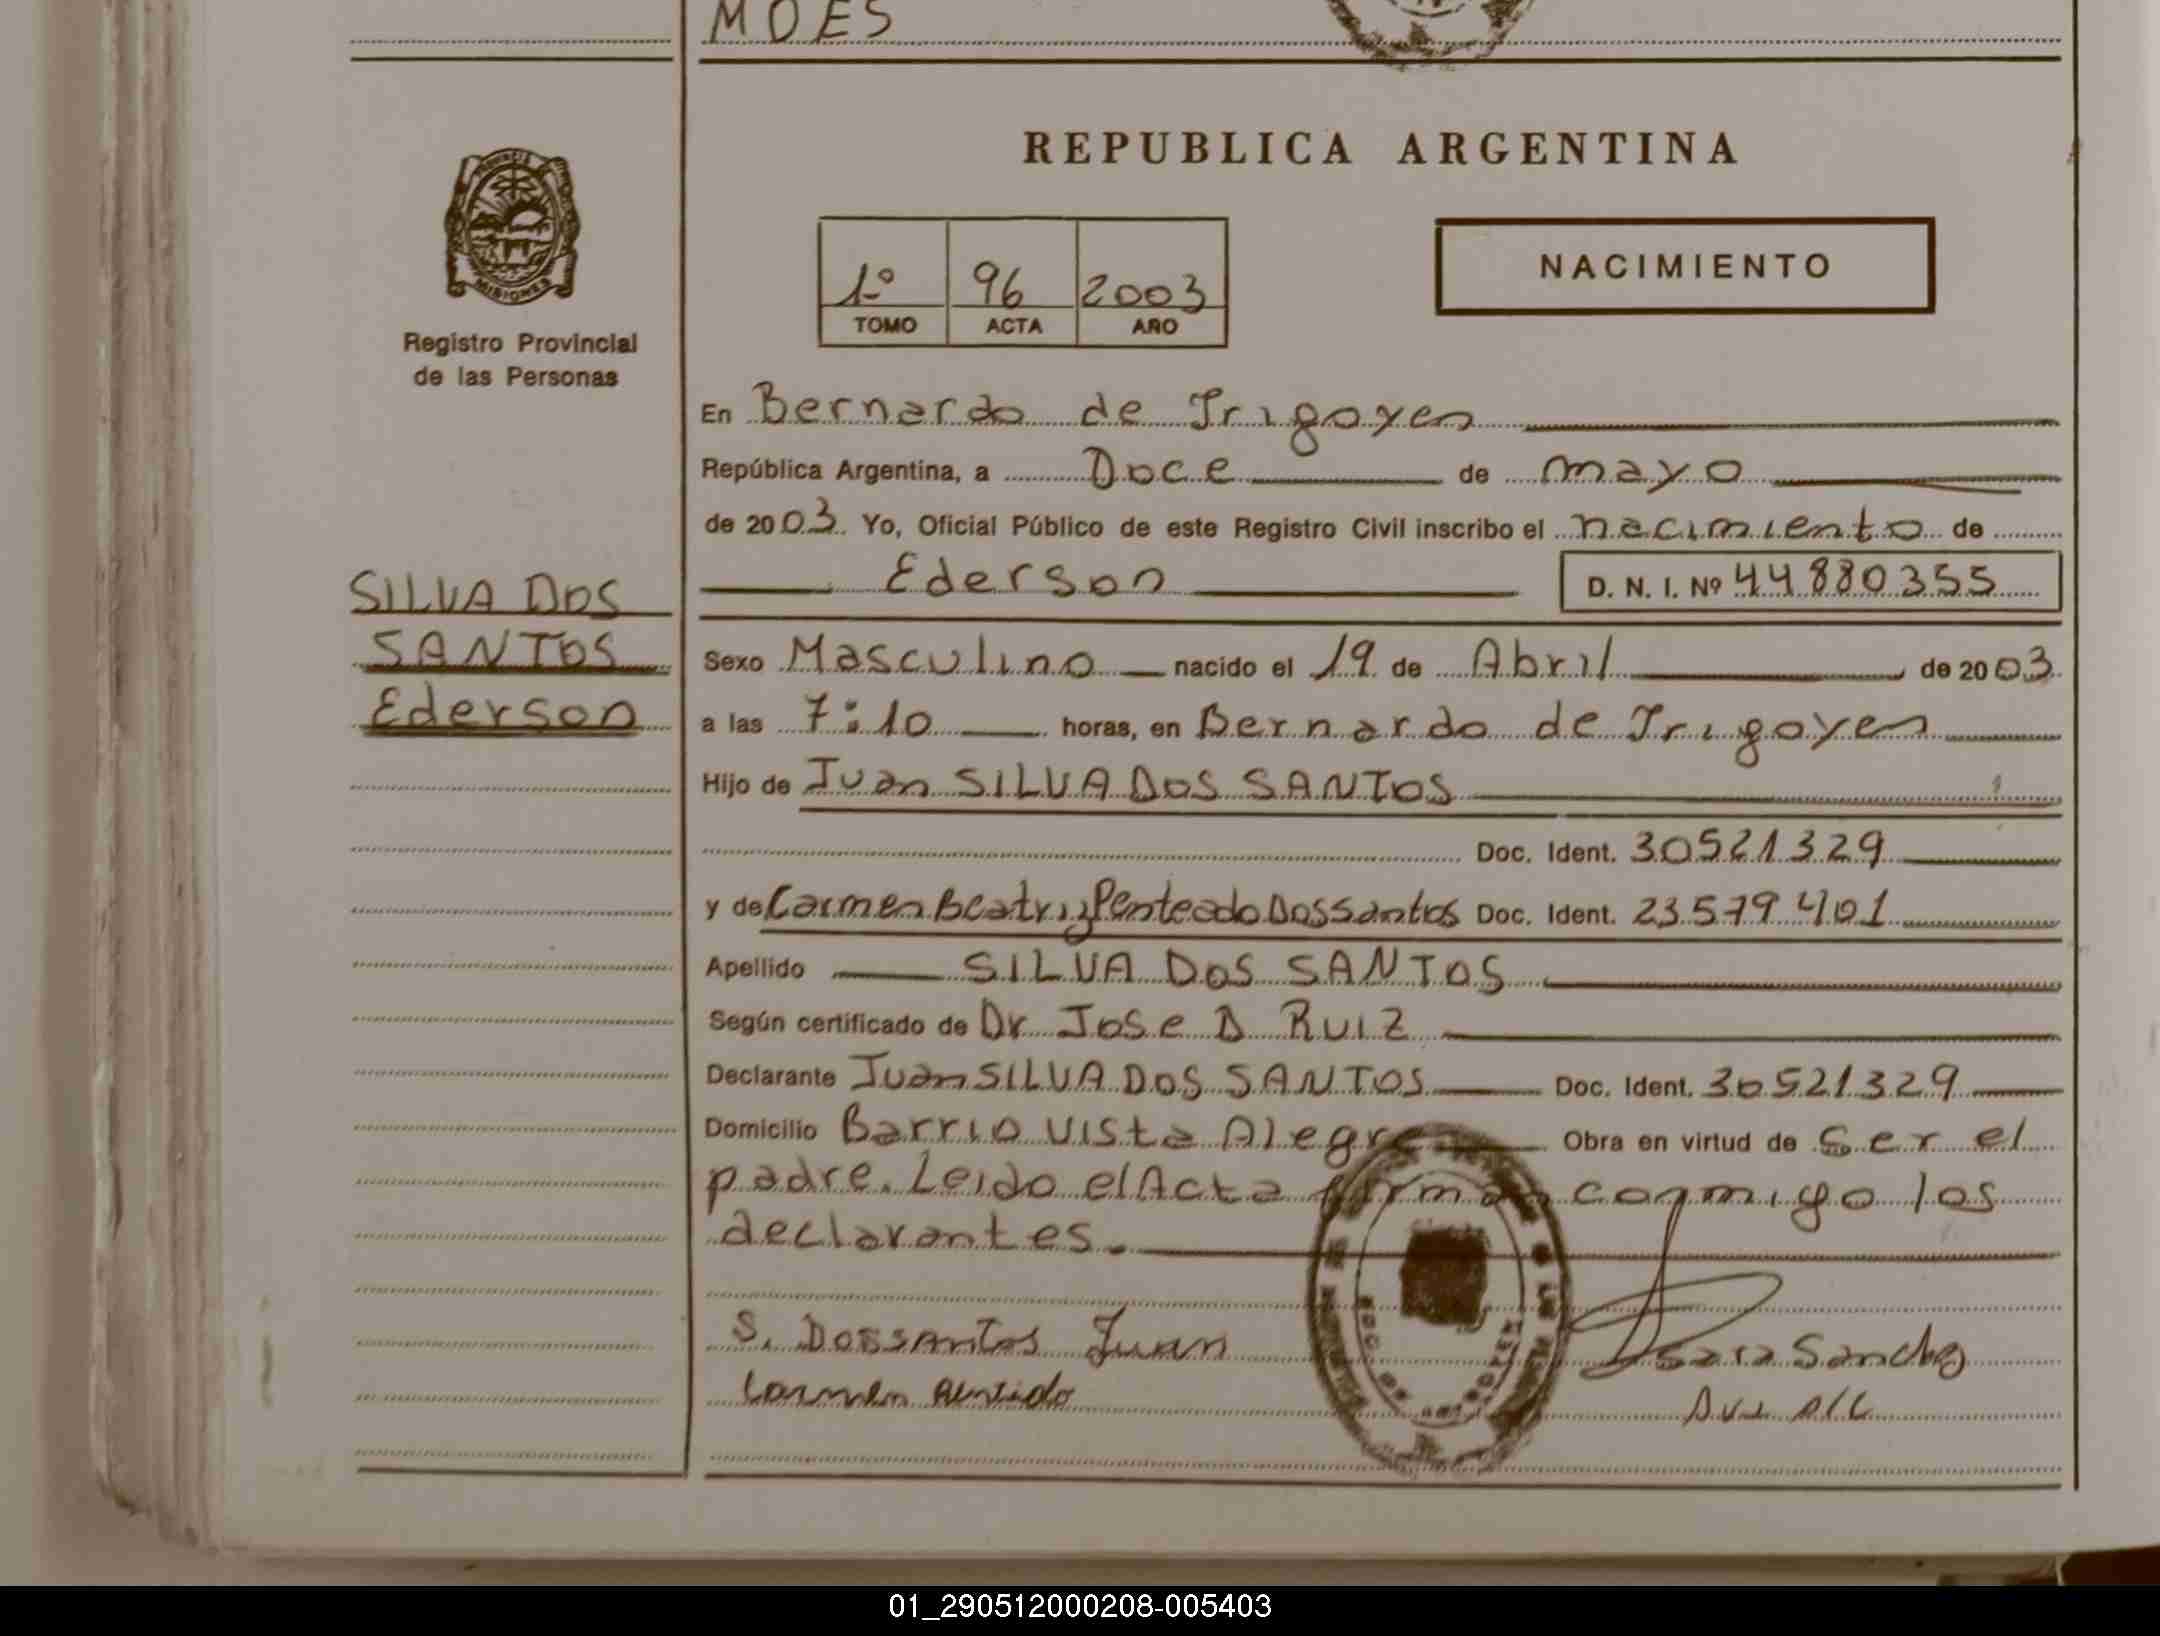 MOES
PROVINCIA
MISIONES
Registro Provincial
de las Personas
SILVA DOS
SANTOS
Ederson
REPUBLICA ARGENTINA
1º 96 2003
TOMO ACTA AÑO
NACIMIENTO
En Bernardo de Irigoyen
República Argentina, a Doce de mayo
de 2003. Yo, Oficial Público de este Registro Civil inscribo el nacimiento de
Ederson D. N. I. Nº 44880355
Sexo Masculino nacido el 19 de Abril de 2003
a las 7:10 horas, en Bernardo de Irigoyen
Hijo de Juan SILVA DOS SANTOS
Doc. Ident. 30521329
y de Carmen Beatriz Penteado Dos santos Doc. Ident. 23579401
Apellido SILVA DOS SANTOS
Según certificado de Dr Jose D RUIZ
Declarante Juan SILVA DOS SANTOS Doc. Ident. 30521329
Domicilio Barrio Vista Alegre Obra en virtud de Ser el
padre. Leido el Acta firman conmigo los
declarantes.
S. Dossantos Juan
Carmen
Sara Sanchez
01_290512000208-005403